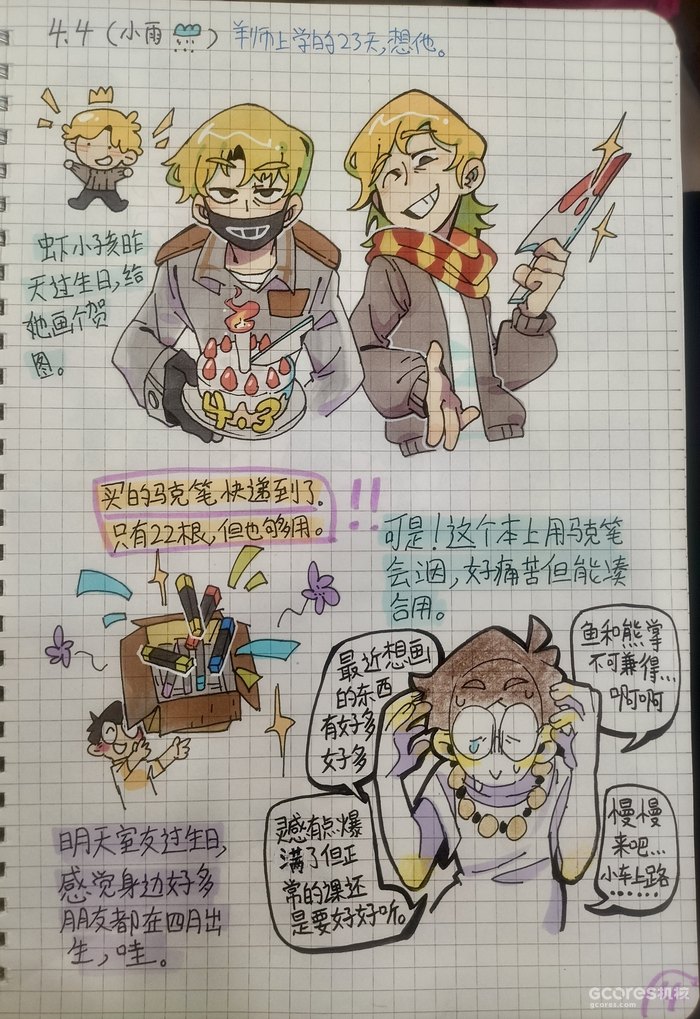 4.4（小雨）羊师上学的23天,想他。
虾小孩昨
天过生日,给
她画个贺
图。
4.3
买的马克笔快递到了.
只有22根,但也够用。!!
可是！这个本上用马克笔
会洇,好痛苦但能凑
合用。
最近想画
的东西
有好多
好多
鱼和熊掌
不可兼得...
啊啊啊
灵感有点爆
满了但正
常的课还
是要好好听。
慢慢
来吧...
小车上路
......
明天室友过生日,
感觉身边好多
朋友都在四月出
生,哇。
GCORES机核
gcores.com